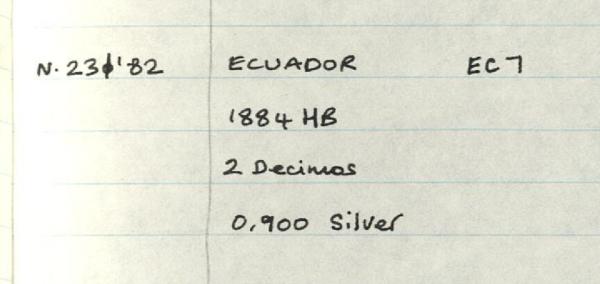 N. ECUADOR EC7
1884 HB
2 Decimos
0.900 Silver